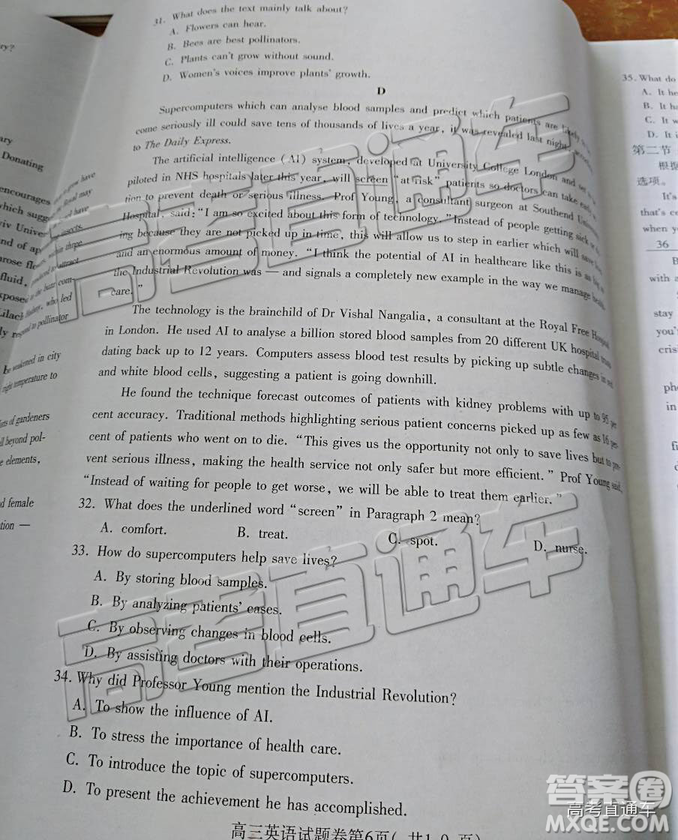 31. What does the text mainly talk about?
A. Flowers can hear.
B. Bees are best pollinators.
C. Plants can't grow without sound.
D. Women's voices improve plants' growth.
D
Supercomputers which can analyse blood samples and predict which patients are likely to
come seriously ill could save tens of thousands of lives a year, it was revealed last night
to The Daily Express.
The artificial intelligence (AI) system, developed at University College London and
piloted in NHS hospitals later this year, will screen "at risk" patients so doctors can take
tion to prevent death or serious illness. Prof Young, a consultant surgeon at Southend Univ
Hospital, said: "I am so excited about this form of technology. "Instead of people getting sick
ing because they are not picked up in time, this will allow us to step in earlier which will
and an enormous amount of money. "I think the potential of AI in healthcare like this is as
the Industrial Revolution was — and signals a completely new example in the way we manage
care."
The technology is the brainchild of Dr Vishal Nangalia, a consultant at the Royal Free Hospital
in London. He used AI to analyse a billion stored blood samples from 20 different UK hospital
dating back up to 12 years. Computers assess blood test results by picking up subtle changes in
and white blood cells, suggesting a patient is going downhill.
He found the technique forecast outcomes of patients with kidney problems with up to 95 per
cent accuracy. Traditional methods highlighting serious patient concerns picked up as few as 16 per
cent of patients who went on to die. "This gives us the opportunity not only to save lives but to pre-
vent serious illness, making the health service not only safer but more efficient." Prof Young said,
"Instead of waiting for people to get worse, we will be able to treat them earlier."
32. What does the underlined word "screen" in Paragraph 2 mean?
A. comfort. B. treat. C. spot. D. nurse.
33. How do supercomputers help save lives?
A. By storing blood samples.
B. By analyzing patients' cases.
C. By observing changes in blood cells.
D. By assisting doctors with their operations.
34. Why did Professor Young mention the Industrial Revolution?
A. To show the influence of AI.
B. To stress the importance of health care.
C. To introduce the topic of supercomputers.
D. To present the achievement he has accomplished.
高三英语试题卷第6页(共10页)
35. What do
A. It he
B. It h
C. It
D. It
第二节
根据
选项。
It's
that's c
when y
36
B
with a
stay
you'
cris
ph
in
ry?
ary
Donating
encourages
iv Univer
nd of ap
rose fl
fluid,
xposed
Lilach
ly respond to pollinator
be weakened in city
right temperature to
lots of gardeners
ll beyond pol-
e elements,
d female
tion —
高考直通车
高考直通车
答案圈
高考直通车
MXQE.COM